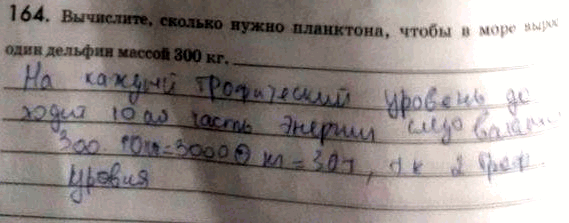 164. Вычислите, сколько нужно планктона, чтобы в море вырос
один дельфин массой 300 кг.
На каждый трофический уровень до
ходит 10 ая часть энергии следовательно
300 = 30000 кг = 30т, т к 2 троф.
уровня